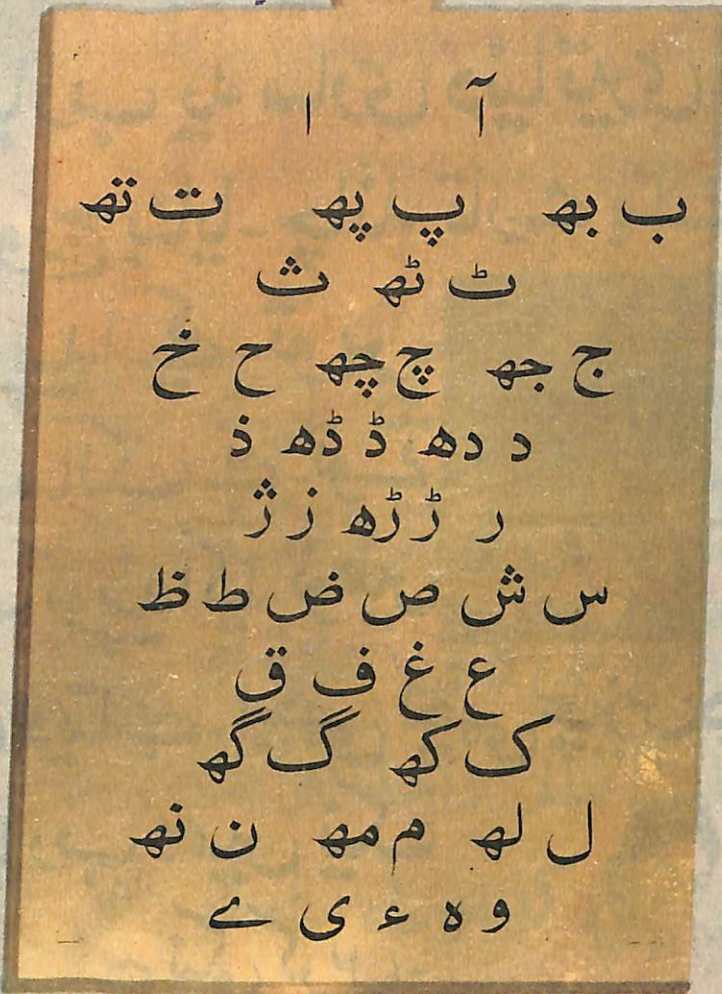 آ ا
ب بھ پ پھ ت تھ
ٹ ٹھ ث
ج جھ چ چھ ح خ
د دھ ڈ ڈھ ذ
ر ڑ ڑھ ز ژ
س ش ص ض ط ظ
ع غ ف ق
ک کھ گ گھ
ل لھ م مھ ن نھ
و ہ ء ی ے